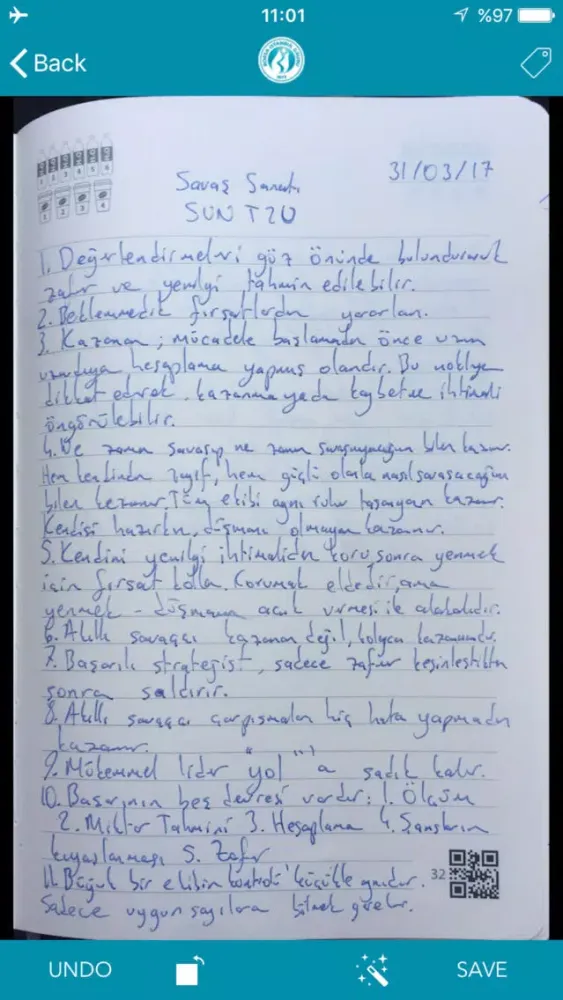 11:01
%97
Back
31/03/17
Savaş Sanatı
SUN TZU
1. Değerlendirmeleri göz önünde bulundurarak
zafer ve yenilgi tahmin edilebilir.
2. Beklenmedik fırsatlardan yararlan.
3. Kazanan; mücadele başlamadan önce uzun
uzadıya hesaplama yapmış olandır. Bu noktaya
dikkat ederek, kazanma yada kaybetme ihtimali
öngörülebilir.
4. Ne zaman savaşıp ne zaman savaşmayacağını bilen kazanır.
Hem kendinden zayıf, hem güçlü olanla nasıl savaşacağını
bilen kazanır. Tüm ekibi aynı ruhu taşıyan kazanır.
Kendisi hazırken, düşmanı olmayan kazanır.
5. Kendini yenilgi ihtimalinden koru, sonra yenmek
için fırsat kolla. Korumak eldedir, ama
yenmek - düşmanın açık vermesi ile alakalıdır.
6. Akıllı savaşçı kazanan değil, kolayca kazanandır.
7. Başarılı stratejist, sadece zafer kesinleştikten
sonra saldırır.
8. Akıllı savaşçı çarpışmaları hiç hata yapmadan
kazanır.
9. Mükemmel lider "yol" a sadık kalır.
10. Başarının beş devresi vardır: 1. Ölçüm
2. Miktar Tahmini 3. Hesaplama 4. Şansların
kıyaslanması 5. Zafer
11. Büyük bir ekibin kontrolü küçükle aynıdır.
Sadece uygun sayılara bölmek gerekir.
32
UNDO
SAVE